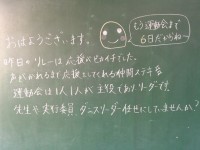 おはようございます。
もう運動会まで
6日だからね〜
昨日のリレーは応援がピカイチでした。
声がかれるまで応援してくれる仲間ステキ
運動会は1人1人が主役でありリーダーです。
先生や実行委員 ダンスリーダー任せにしていませんか?